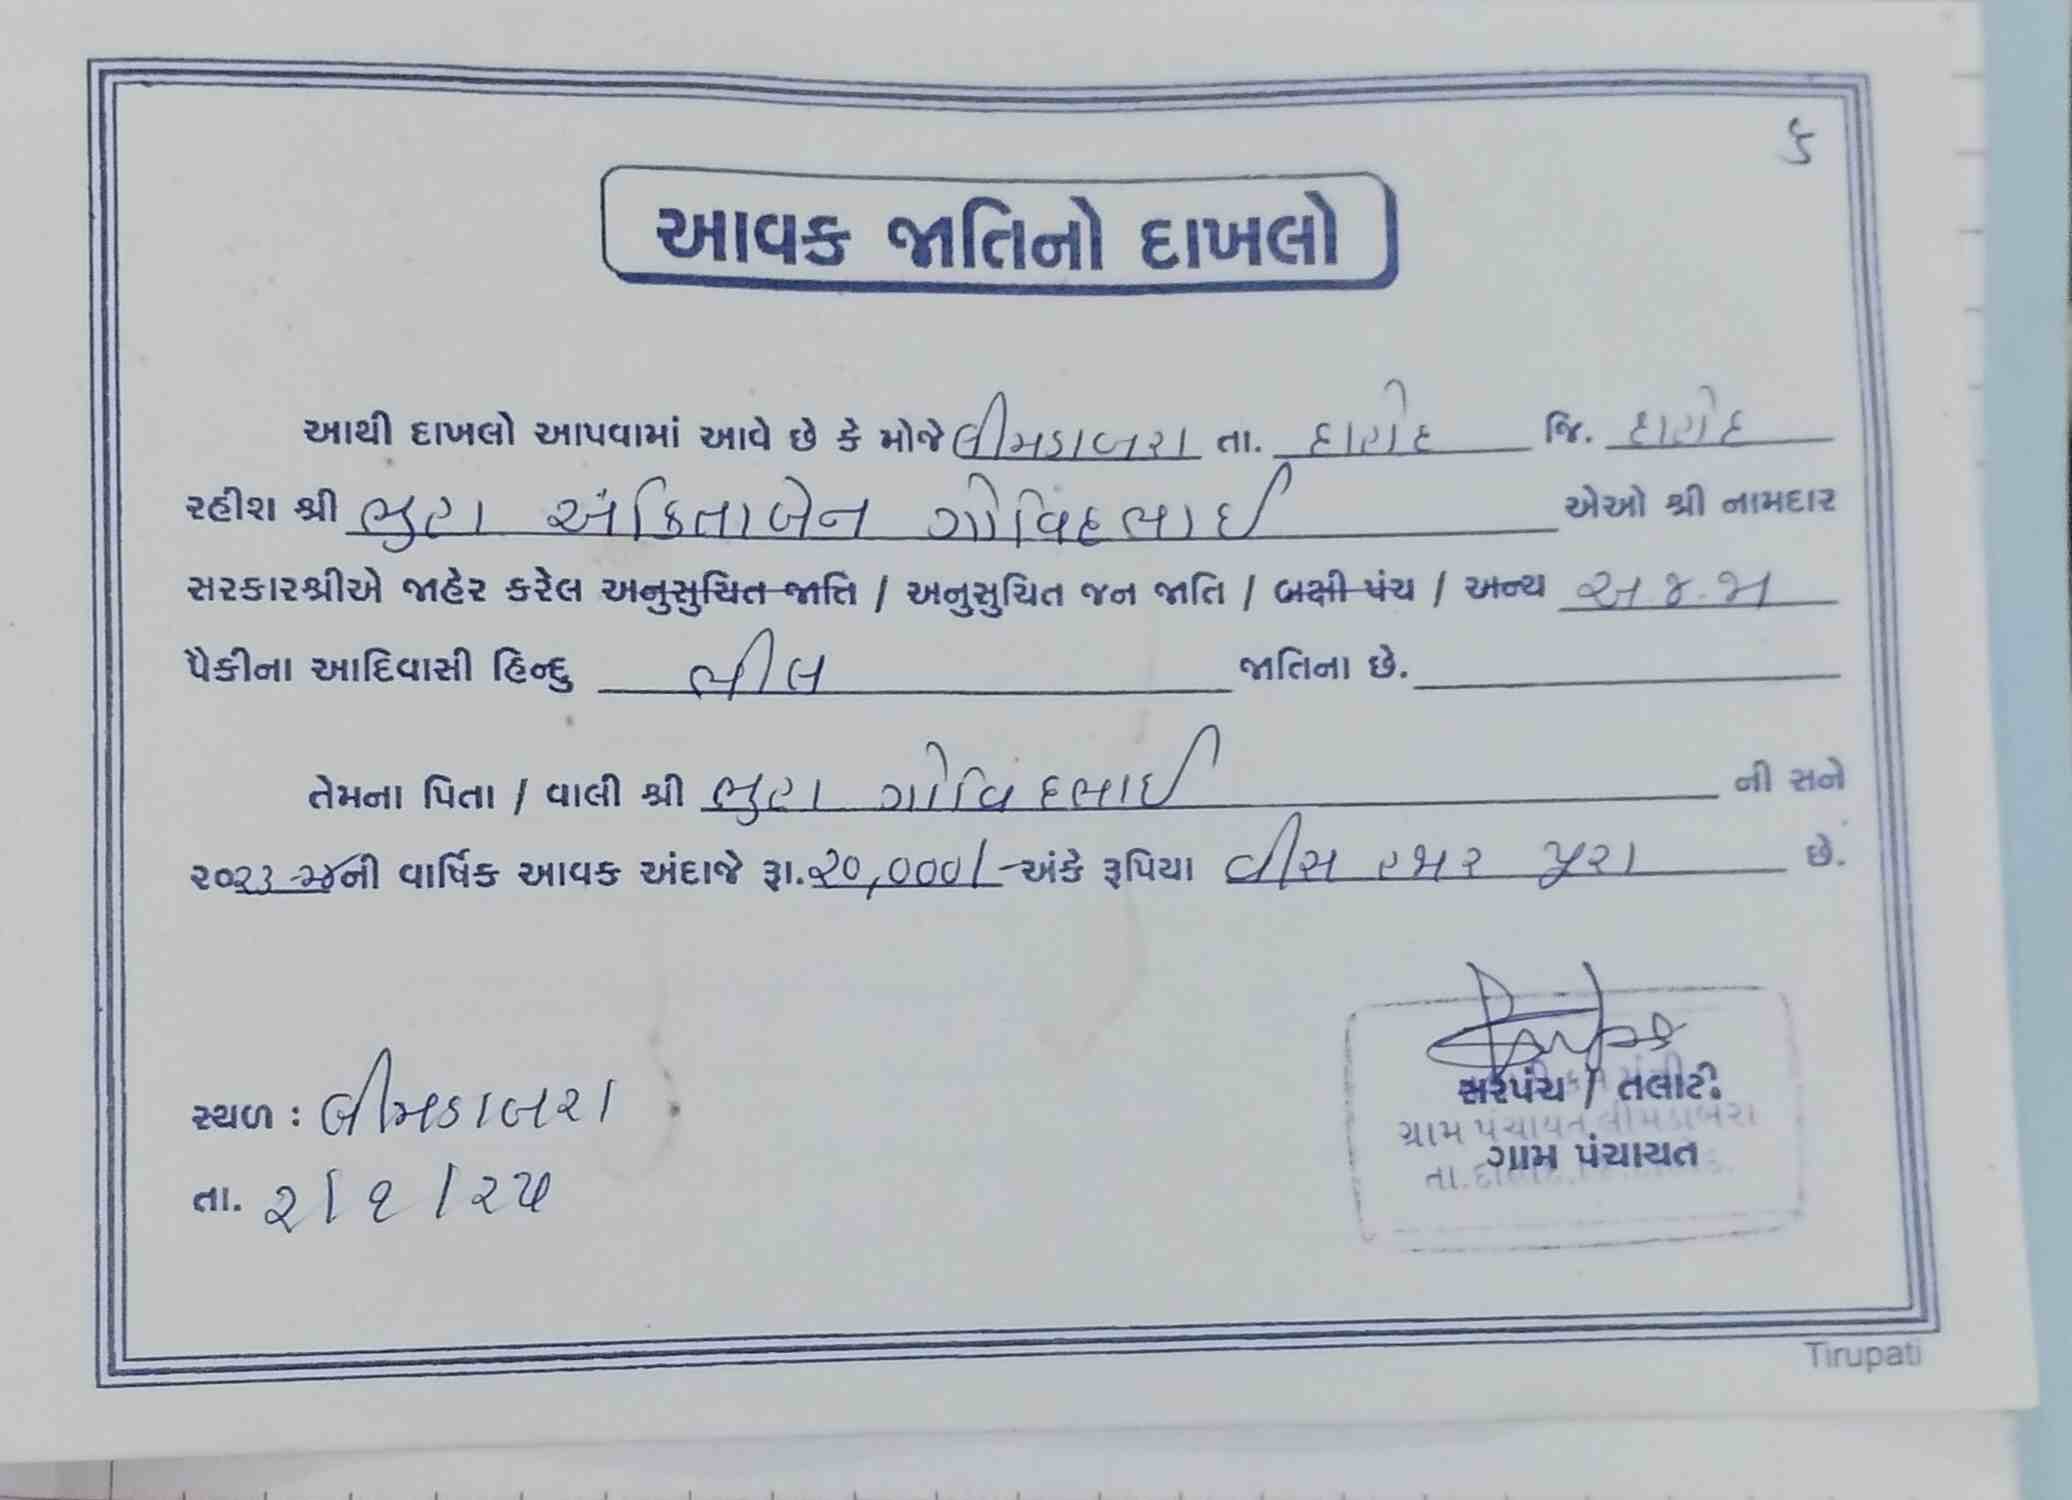 ક
આવક જાતિનો દાખલો
આથી દાખલો આપવામાં આવે છે કે મોજે લીમડાબરા તા. દાહોદ જિ. દાહોદ
રહીશ શ્રી ભુરા અંકિતાબેન ગોવિંદભાઈ એઓ શ્રી નામદાર
સરકારશ્રીએ જાહેર કરેલ અનુસુચિત જાતિ / અનુસુચિત જન જાતિ / બક્ષી પંચ / અન્ય અ.જ.જા
પૈકીના આદિવાસી હિન્દુ ભીલ જાતિના છે.
તેમના પિતા / વાલી શ્રી ભુરા ગોવિંદભાઈ ની સને
૨૦૨૩-૨૪ની વાર્ષિક આવક અંદાજે રૂા.૨૦,૦૦૦/- અંકે રૂપિયા વીસ હજાર પુરા છે.
સરપંચ / તલાટી
સ્થળ : લીમડાબરા
ગ્રામ પંચાયત લીમડાબરા
ગ્રામ પંચાયત
તા. ૨/૧/૨૫
Tirupati